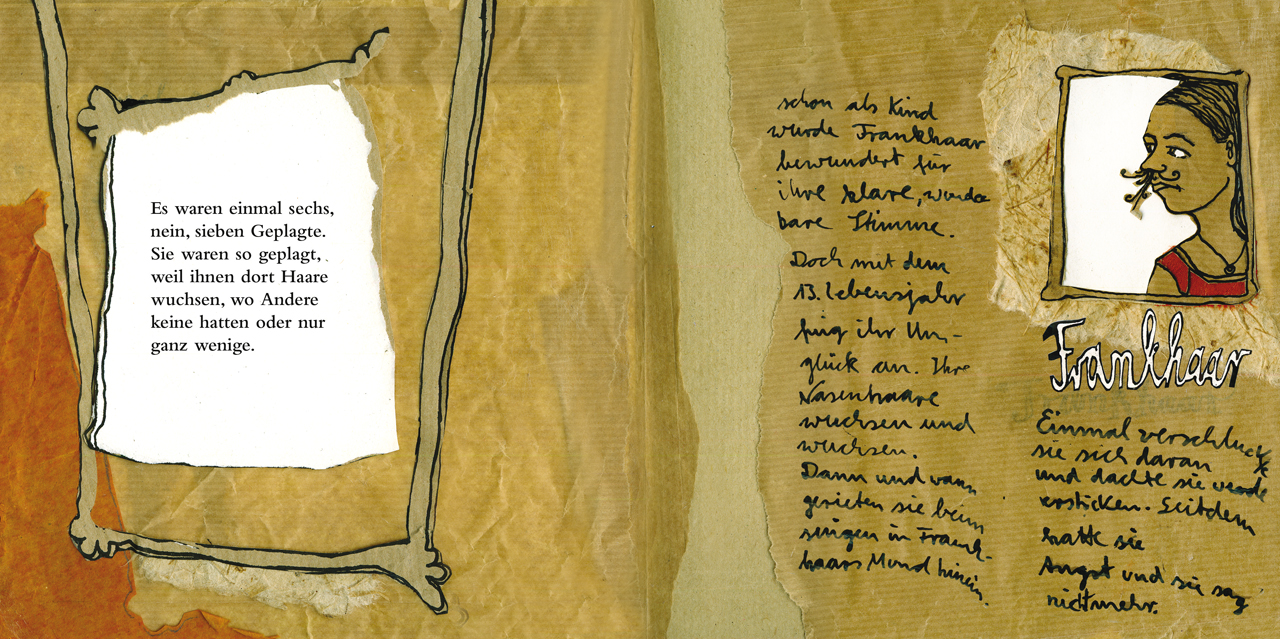 Es waren einmal sechs,
nein, sieben Geplagte.
Sie waren so geplagt,
weil ihnen dort Haare
wuchsen, wo Andere
keine hatten oder nur
ganz wenige.
schon als Kind
wurde Frankhaar
bewundert für
ihre klare, wunder
bare Stimme.
Doch mit dem
13. Lebensjahr
fing ihr Un-
glück an. Ihre
Nasenhaare
wuchsen und
wuchsen.
Dann und wann
gerieten sie beim
singen in Frank-
haars Mund hinein.
Frankhaar
Einmal verschluckte
sie sich daran
und dachte sie werde
ersticken. Seitdem
hatte sie
Angst und sie sang
nicht mehr.